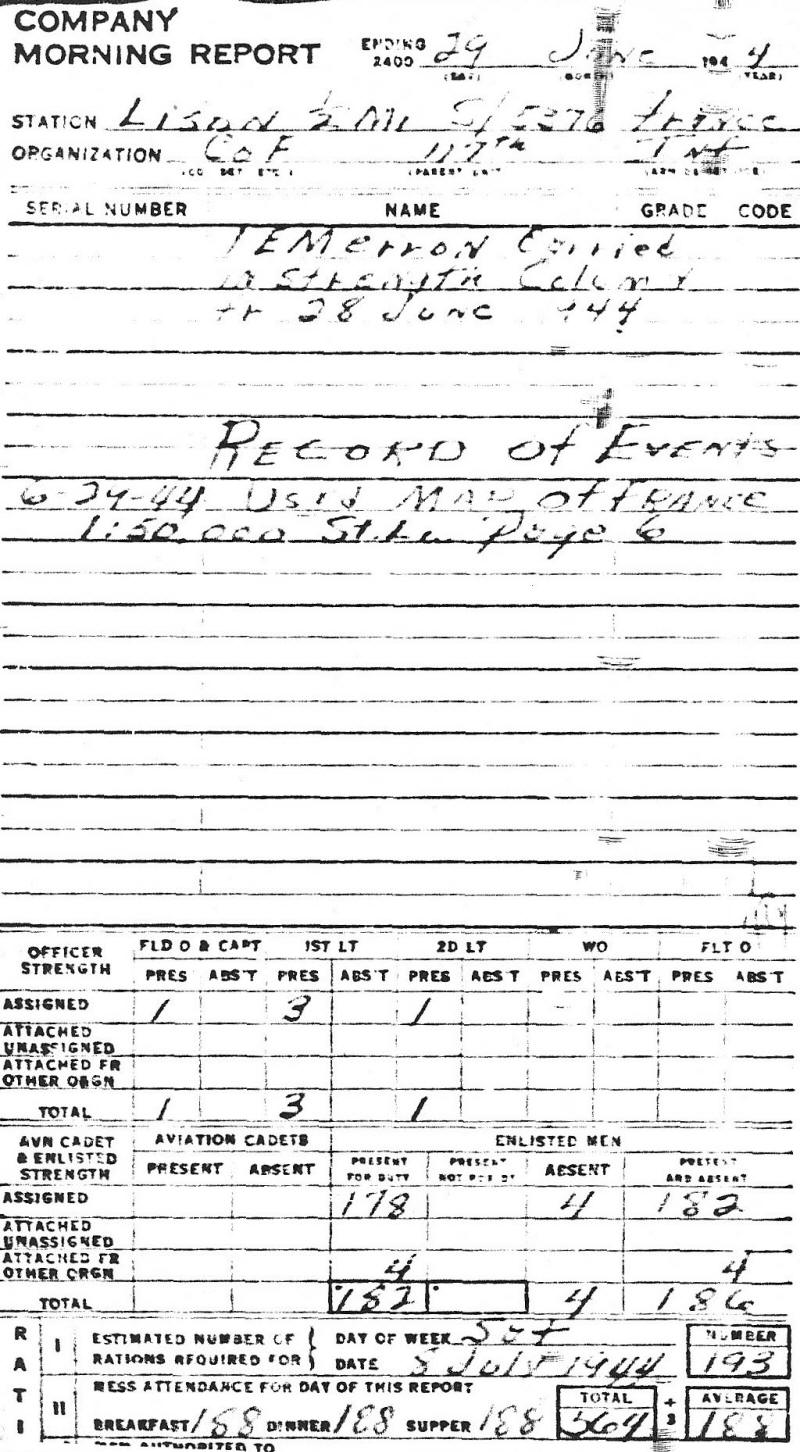 COMPANY
MORNING REPORT ENDING 2400 29 June 194 4
(DAY) (MONTH) (YEAR)
STATION Lison ½ Mi S/5376 France
ORGANIZATION Co F 117th Inf
(PARENT UNIT)
SERIAL NUMBER NAME GRADE CODE
1 EM error Carried
in Strength Column
28 June 1944
RECORD of EVENTS
6-29-44 Used MAP of FRANCE
1:50,000 St. Lo Page 6
OFFICER STRENGTH FLD O & CAPT 1ST LT 2D LT WO FLT O
PRES ABS'T PRES ABS'T PRES ABS'T PRES ABS'T PRES ABS'T
ASSIGNED 1 3 1
ATTACHED UNASSIGNED
ATTACHED FR OTHER ORGN
TOTAL 1 3 1
AVN CADET & ENLISTED STRENGTH AVIATION CADETS ENLISTED MEN
PRESENT ABSENT PRESENT FOR DUTY PRESENT NOT FOR DY ABSENT PRESENT AND ABSENT
ASSIGNED 178 4 182
ATTACHED UNASSIGNED
ATTACHED FR OTHER ORGN 4 4
TOTAL 182 4 186
R A T I
I ESTIMATED NUMBER OF RATIONS REQUIRED FOR DAY OF WEEK Sat NUMBER
DATE 8 July 1944 193
II MESS ATTENDANCE FOR DAY OF THIS REPORT TOTAL ÷ 3 AVERAGE
BREAKFAST 188 DINNER 188 SUPPER 188 564 188
AUTHORIZED TO